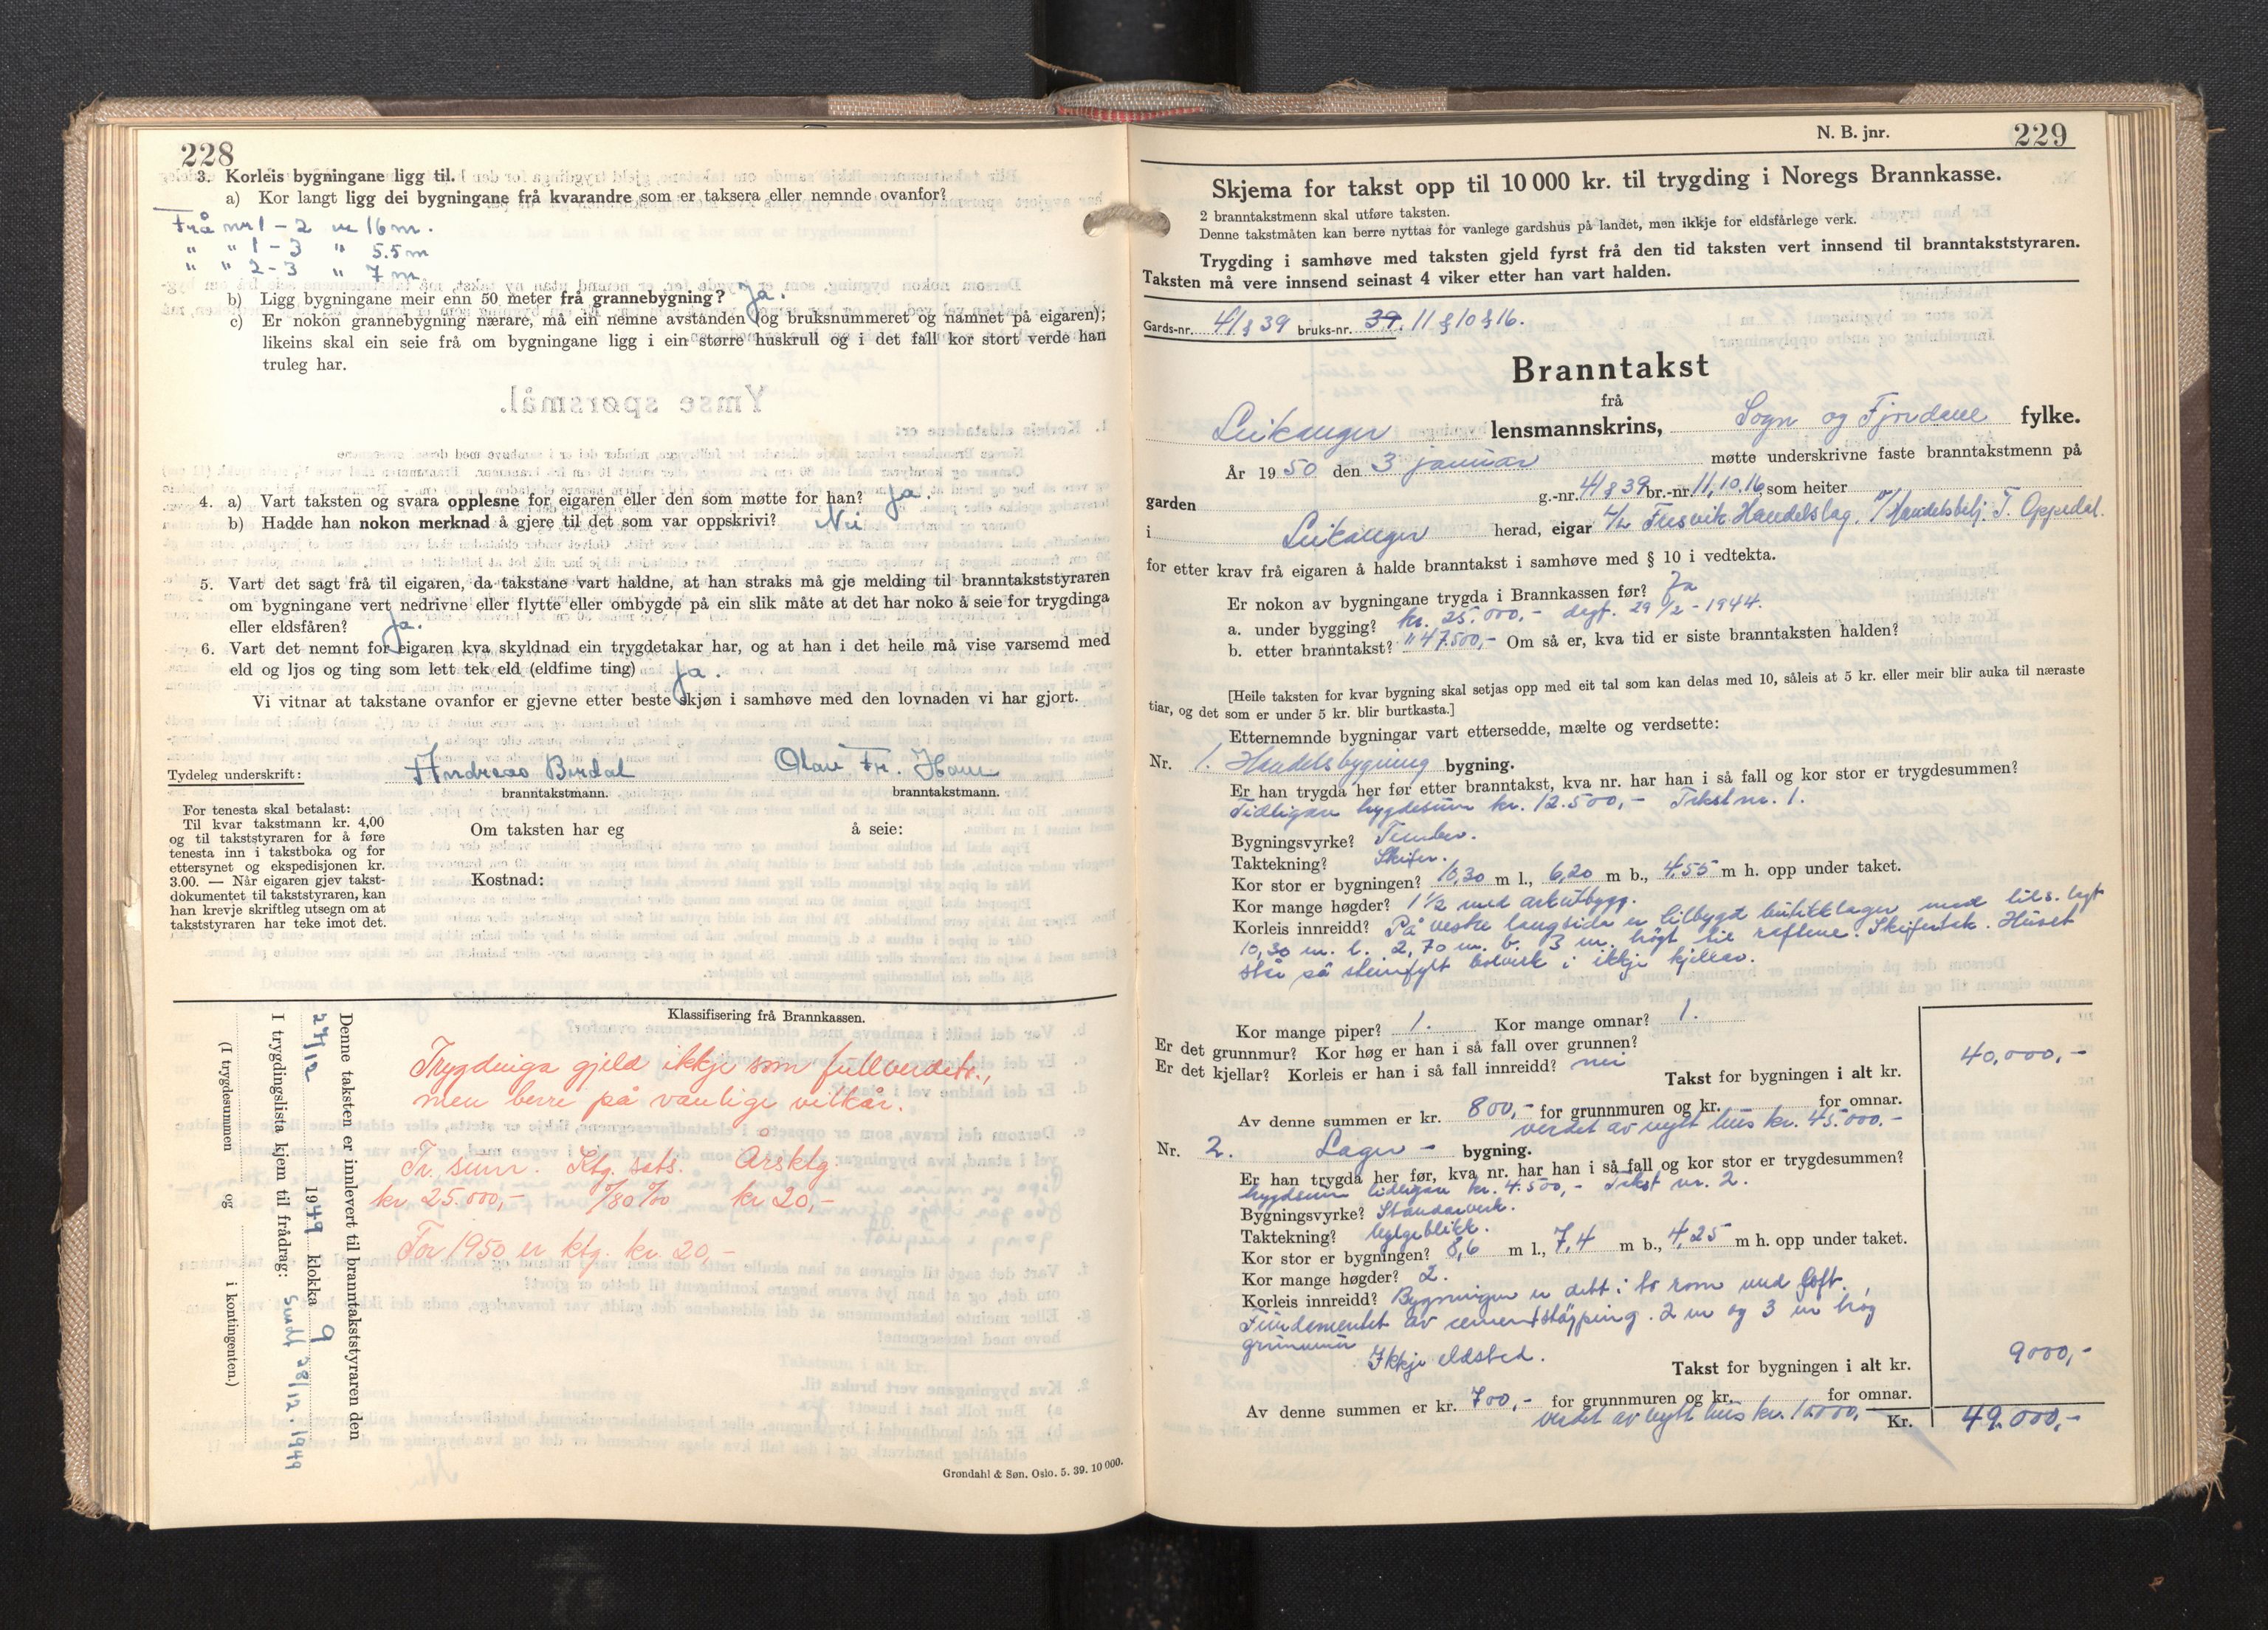 228
3. Korleis bygningane ligg til.
a) Kor langt ligg dei bygningane frå kvarandre som er taksera eller nemnde ovanfor?
Frå nr 1 - 2 er 16 m.
" " 1 - 3 " 5.5 m
" " 2 - 3 " 7 m
b) Ligg bygningane meir enn 50 meter frå grannebygning? Ja.
c) Er nokon grannebygning nærare, må ein nemne avstanden (og bruksnummeret og namnet på eigaren);
likeins skal ein seie frå om bygningane ligg i ein større huskrull og i det fall kor stort verde han
truleg har.
4. a) Vart taksten og svara opplesne for eigaren eller den som møtte for han? Ja.
b) Hadde han nokon merknad å gjere til det som var oppskrivi? Nei
5. Vart det sagt frå til eigaren, da takstane vart haldne, at han straks må gje melding til branntakststyraren
om bygningane vert nedrivne eller flytte eller ombygde på ein slik måte at det har noko å seie for trygdinga
eller eldsfåren? Ja.
6. Vart det nemnt for eigaren kva skyldnad ein trygdetakar har, og at han i det heile må vise varsemd med
eld og ljos og ting som lett tek eld (eldfime ting) Ja.
Vi vitnar at takstane ovanfor er gjevne etter beste skjøn i samhøve med den lovnaden vi har gjort.
Tydeleg underskrift: Andreas Burdal Olav Fr. Ham
branntakstmann. branntakstmann.
For tenesta skal betalast:
Til kvar takstmann kr. 4,00
og til takststyraren for å føre
tenesta inn i takstboka og for
ettersynet og ekspedisjonen kr.
3.00. — Når eigaren gjev takst-
dokumentet til takststyraren, kan
han krevje skriftleg utsegn om at
takststyraren har teke imot det.
Om taksten har eg å seie:
Kostnad:
Klassifisering frå Brannkassen.
Trygdinga gjeld ikkje som fullverdetr.,
men berre på vanlige vilkår.
Tr. sum. Ktg. sats. Årsktg.
kr 25.000,- /80 ‰ kr 20,-
For 1950 er ktg. kr. 20,-
Denne taksten er innlevert til branntakststyraren den
27/12 1949 klokka 9
I trygdingslista kjem til frådrag: Sendt 28/12. 1949
(I trygdesummen og i kontingenten.)
Grøndahl & Søn. Oslo. 5. 39. 10 000.
N. B. jnr. 229
Skjema for takst opp til 10 000 kr. til trygding i Noregs Brannkasse.
2 branntakstmenn skal utføre taksten.
Denne takstmåten kan berre nyttas for vanlege gardshus på landet, men ikkje for eldsfårlege verk.
Trygding i samhøve med taksten gjeld fyrst frå den tid taksten vert innsend til branntakststyraren.
Taksten må vere innsend seinast 4 viker etter han vart halden.
Gards-nr. 41 & 39 bruks-nr. 39. 11 & 10 & 16.
Branntakst
frå
Leikanger lensmannskrins, Sogn og Fjordane fylke.
År 1950 den 3 januar møtte underskrivne faste branntakstmenn på
garden g.-nr. 41 & 39 br.-nr. 11, 10, 16, som heiter
i Leikanger herad, eigar A/L Fresvik Handelslag, v/Handelsbetj. T. Oppedal.
for etter krav frå eigaren å halde branntakst i samhøve med § 10 i vedtekta.
Er nokon av bygningane trygda i Brannkassen før? Ja
a. under bygging? kr. 25.000,- dagt. 29/2 - 1944.
b. etter branntakst? " 47.500,- Om så er, kva tid er siste branntaksten halden?
[Heile taksten for kvar bygning skal setjas opp med eit tal som kan delas med 10, såleis at 5 kr. eller meir blir auka til næraste
tiar, og det som er under 5 kr. blir burtkasta.]
Etternemnde bygningar vart ettersedde, mælte og verdsette:
Nr. 1. Handelsbygning bygning.
Er han trygda her før etter branntakst, kva nr. har han i så fall og kor stor er trygdesummen?
Tidligare trygdesum kr. 12.500,- Takst nr. 1.
Bygningsvyrke? Tømber.
Taktekning? Skifer.
Kor stor er bygningen? 10,30 m l., 6,20 m b., 4,55 m h. opp under taket.
Kor mange høgder? 1½ med arkutbygg.
Korleis innreidd? På vestre langsida er tilbygt butikklager med tils. lagt
10,30 m. l. 2,70 m. b. 3 m. høgt til raftene. Skifertak. Huset
står på steinfylt bolverk i ikkje kjellar.
Kor mange piper? 1. Kor mange omnar? 1.
Er det grunnmur? Kor høg er han i så fall over grunnen?
Er det kjellar? Korleis er han i så fall innreidd? nei
Takst for bygningen i alt kr. 40.000,-
Av denne summen er kr. 800,- for grunnmuren og kr. for omnar.
verdet av nytt hus kr. 45.000.-
Nr. 2. Lager - bygning.
Er han trygda her før, kva nr. har han i så fall og kor stor er trygdesummen?
trygdesum tidligare kr. 4.500,- Takst nr. 2.
Bygningsvyrke? Standarverk.
Taktekning? bylgeblikk.
Kor stor er bygningen? 8,6 m l., 7,4 m b., 4,25 m h. opp under taket.
Kor mange høgder? 2.
Korleis innreidd? Bygningen er delt i to rom med loft.
Fundamentet av sementstøyping. 2 m og 3 m høg
grunnmur Ikkje eldsted.
Takst for bygningen i alt kr. 9000,-
Av denne summen er kr. 700,- for grunnmuren og kr. for omnar.
verdet av nytt hus kr. 10.000. Kr. 49.000,-